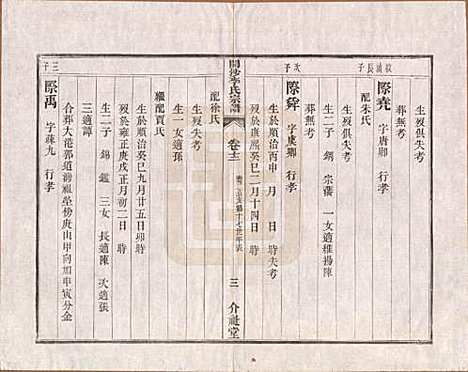 長子
際堯 字唐卿 行孝
生歿俱失考
葬無考
配朱氏
生歿俱失考
生二子 錫 宗藩 一女適楊陳
次子
際舜 字虞卿 行孝
生於順治丙申 月 日 時失考
歿於康熙癸巳二月十四日 時
葬無考
開沙李氏宗譜
卷十二
三 介祉堂
配徐氏
生歿失考
生一女適孫
繼配賈氏
生於順治癸巳九月廿五日卯時
歿於雍正庚戌正月初二日 時
生二子 錫 鑑 三女 長適陳 次適張
三適譚
合葬大港郭道灣祖塋傍庚山甲向加申寅分金
三子
際禹 字疎九 行孝